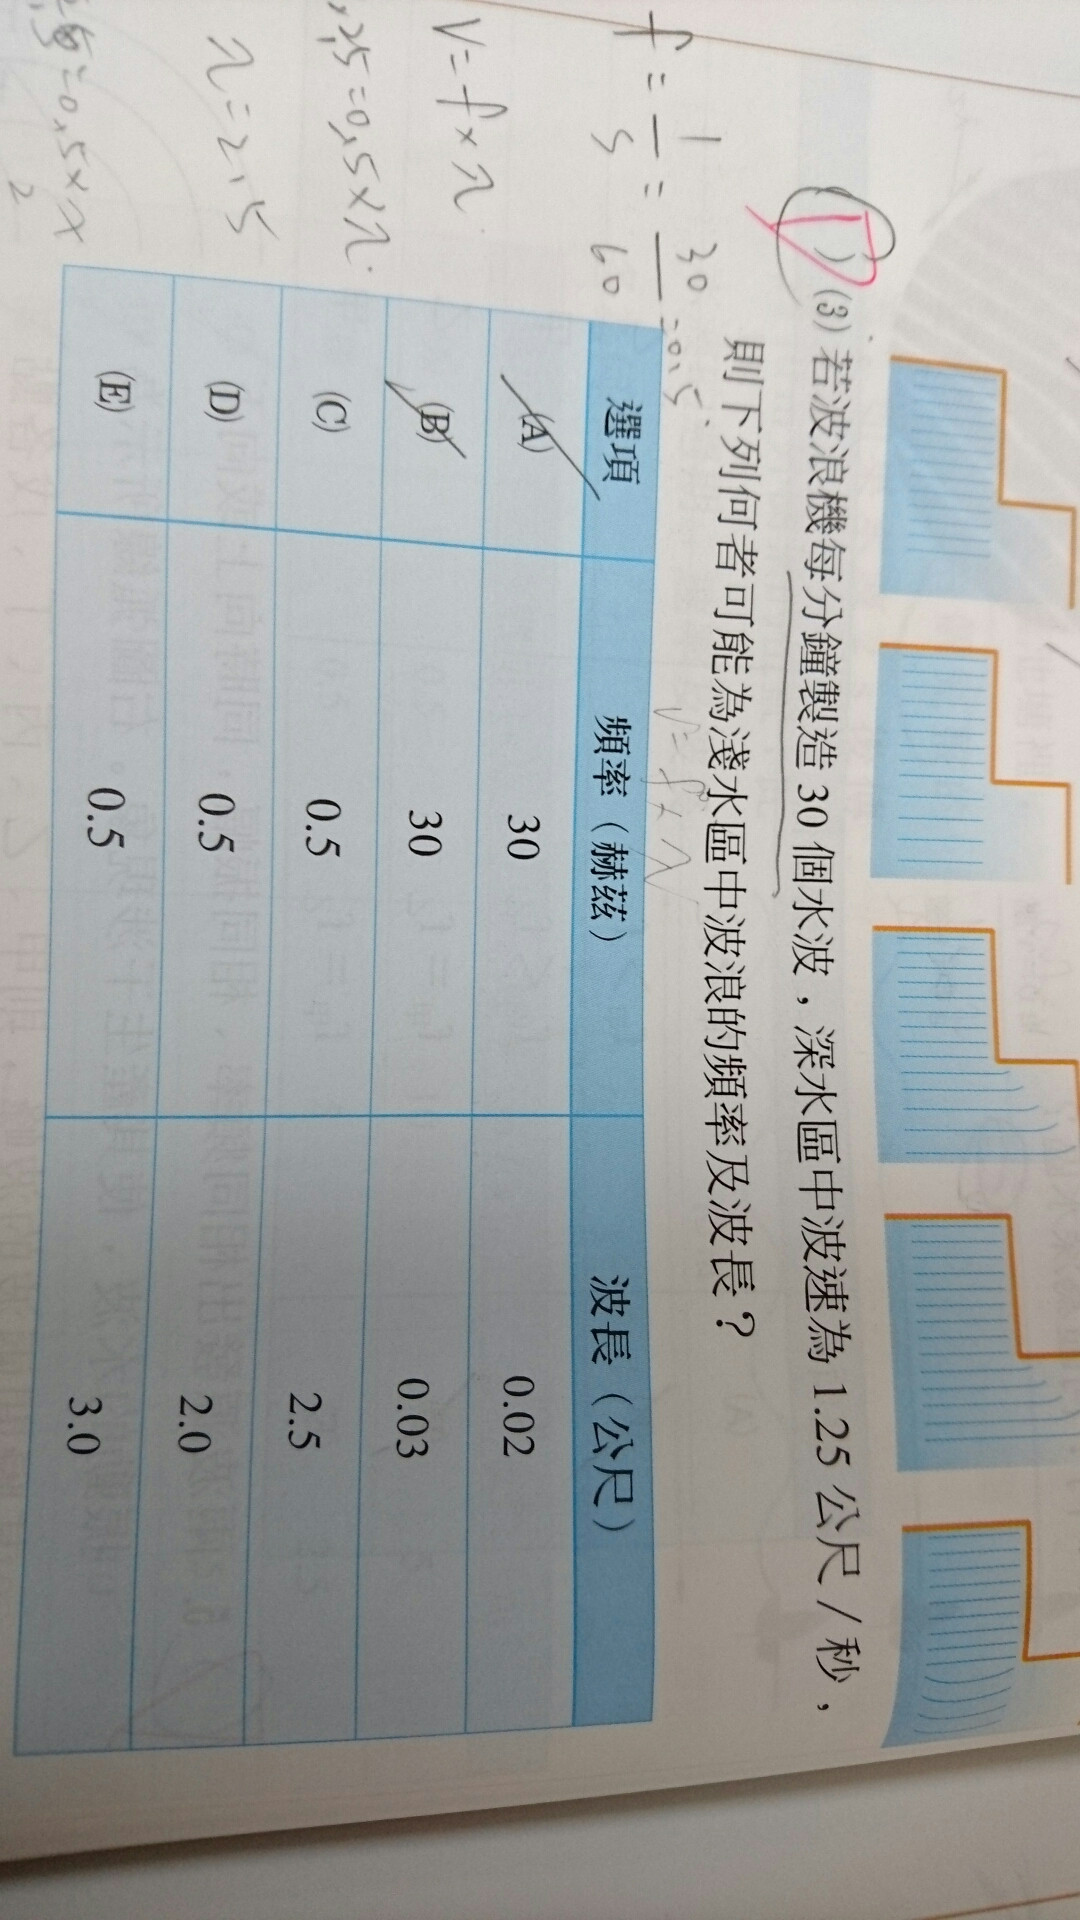 (D)(3)若波浪機每分鐘製造 30 個水波，深水區中波速為 1.25 公尺／秒，
則下列何者可能為淺水區中波浪的頻率及波長？
選項 頻率（赫茲） 波長（公尺）
(A) 30 0.02
(B) 30 0.03
(C) 0.5 2.5
(D) 0.5 2.0
(E) 0.5 3.0
f = 1/s = 30/60 = 0.5
V = f × λ
V = f × λ
.25 = 0.5 × λ
λ = 2.5
= 0.5 × λ
2